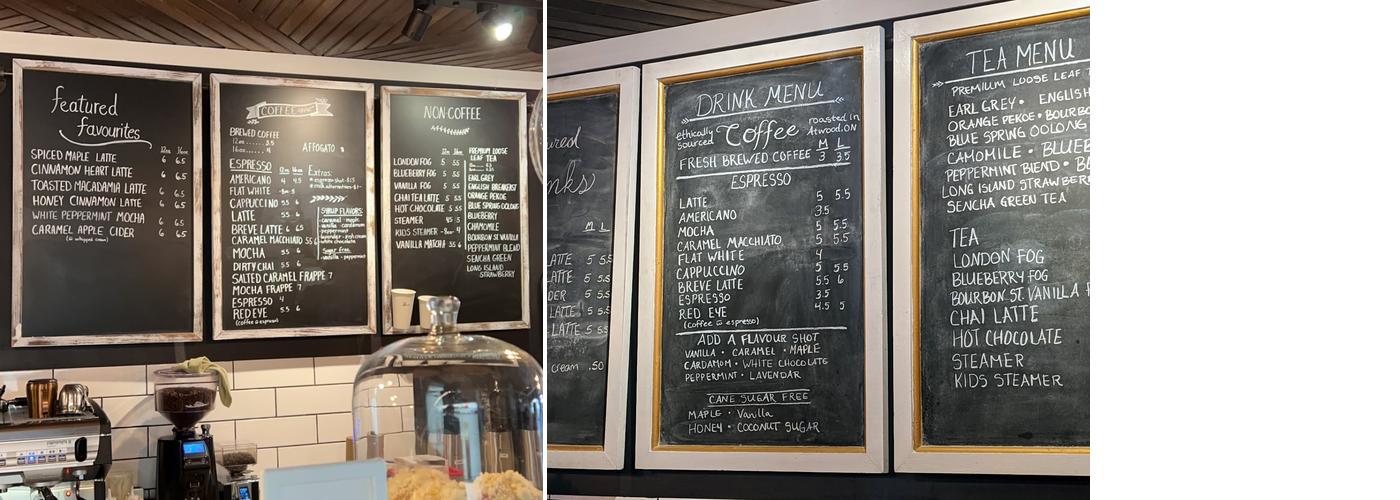 featured
favourites
12oz 16oz
SPICED MAPLE LATTE 6 6.5
CINNAMON HEART LATTE 6 6.5
TOASTED MACADAMIA LATTE 6 6.5
HONEY CINNAMON LATTE 6 6.5
WHITE PEPPERMINT MOCHA 6 6.5
CARAMEL APPLE CIDER 6 6.5
COFFEE
BREWED COFFEE
12oz 3.5
16oz 4
AFFOGATO 8
ESPRESSO 12oz 16oz
AMERICANO 4 4.5
FLAT WHITE
CAPPUCCINO 5.5 6
LATTE 5.5 6
BREVE LATTE 6 6.5
CARAMEL MACCHIATO 5.5 6
MOCHA 5.5 6
DIRTY CHAI 5.5 6
SALTED CARAMEL FRAPPE 7
MOCHA FRAPPE 7
ESPRESSO 4
RED EYE 5.5 6
(coffee & espresso)
Extras:
SYRUP FLAVORS
Sugar Free
NON-COFFEE
12oz 16oz
LONDON FOG 5 5.5
BLUEBERRY FOG 5 5.5
VANILLA FOG 5 5.5
CHAI TEA LATTE 5 5.5
HOT CHOCOLATE 5 5.5
STEAMER 4.5 5
KIDS STEAMER -8oz- 4
VANILLA MATCHA 5.5 6
PREMIUM LOOSE
LEAF TEA
EARL GREY
ENGLISH BREAKFAST
ORANGE PEKOE
BLUE SPRING OOLONG
BLUEBERRY
CHAMOMILE
BOURBON ST. VANILLA
PEPPERMINT BLEND
SENCHA GREEN
LONG ISLAND
STRAWBERRY
ured
nks
M L
ATTE 5 5.5
LATTE 5 5.5
DER 5 5.5
LATTE 5 5.5
LATTE 5 5.5
cream .50
DRINK MENU
ethically sourced Coffee roasted in Atwood.ON
M L
FRESH BREWED COFFEE 3 3.5
ESPRESSO
LATTE 5 5.5
AMERICANO 3.5
MOCHA 5 5.5
CARAMEL MACCHIATO 5 5.5
FLAT WHITE 4
CAPPUCCINO 5 5.5
BREVE LATTE 5.5 6
ESPRESSO 3.5
RED EYE 4.5 5
(coffee & espresso)
ADD A FLAVOUR SHOT
VANILLA • CARAMEL • MAPLE
CARDAMOM • WHITE CHOCOLATE
PEPPERMINT • LAVENDAR
CANE SUGAR FREE
MAPLE • Vanilla
HONEY • COCONUT SUGAR
TEA MENU
PREMIUM LOOSE LEAF T
EARL GREY • ENGLISH
ORANGE PEKOE • BOURBO
BLUE SPRING OOLONG
CAMOMILE • BLUEB
PEPPERMINT BLEND • BL
LONG ISLAND STRAWBER
SENCHA GREEN TEA
TEA
LONDON FOG
BLUEBERRY FOG
BOURBON ST. VANILLA F
CHAI LATTE
HOT CHOCOLATE
STEAMER
KIDS STEAMER